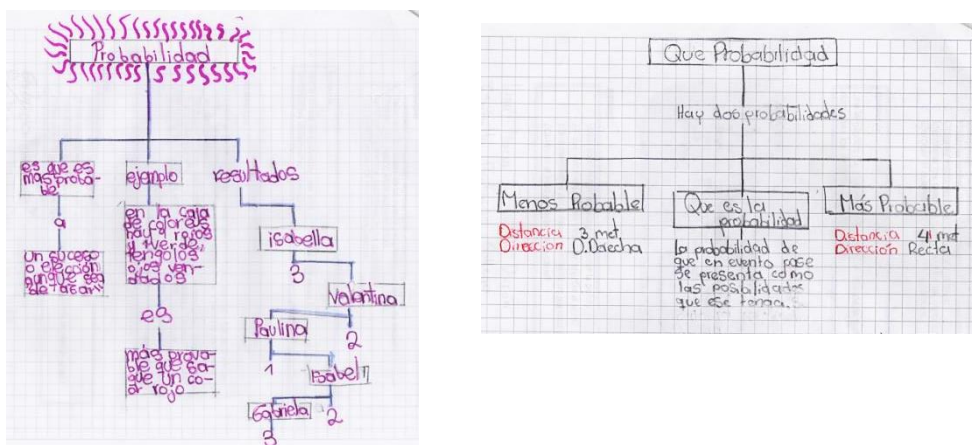 Probabilidad
es que es
mas proba-
ble
a
un suceso
o elección
aunque sea
ejemplo
en la caja
de colores
hay 7 rojos
y 1 verde,
tengo los
ojos ven-
dados
es
más prova-
ble que sa-
que un co-
or rojo
resultados
isabella
3
Valentina
2
Paulina
1
Isabel
2
Gabriela
3
Que Probabilidad
Hay dos probabilidades
Menos Probable
Distancia 3 met
Direccion D.Daecha
Que es la
probabilidad
la probabilidad de
que en evento pase
se presenta como
las posibilidades
que ese tenga.
Más Probable
Distancia 4 met
Dirección Recta